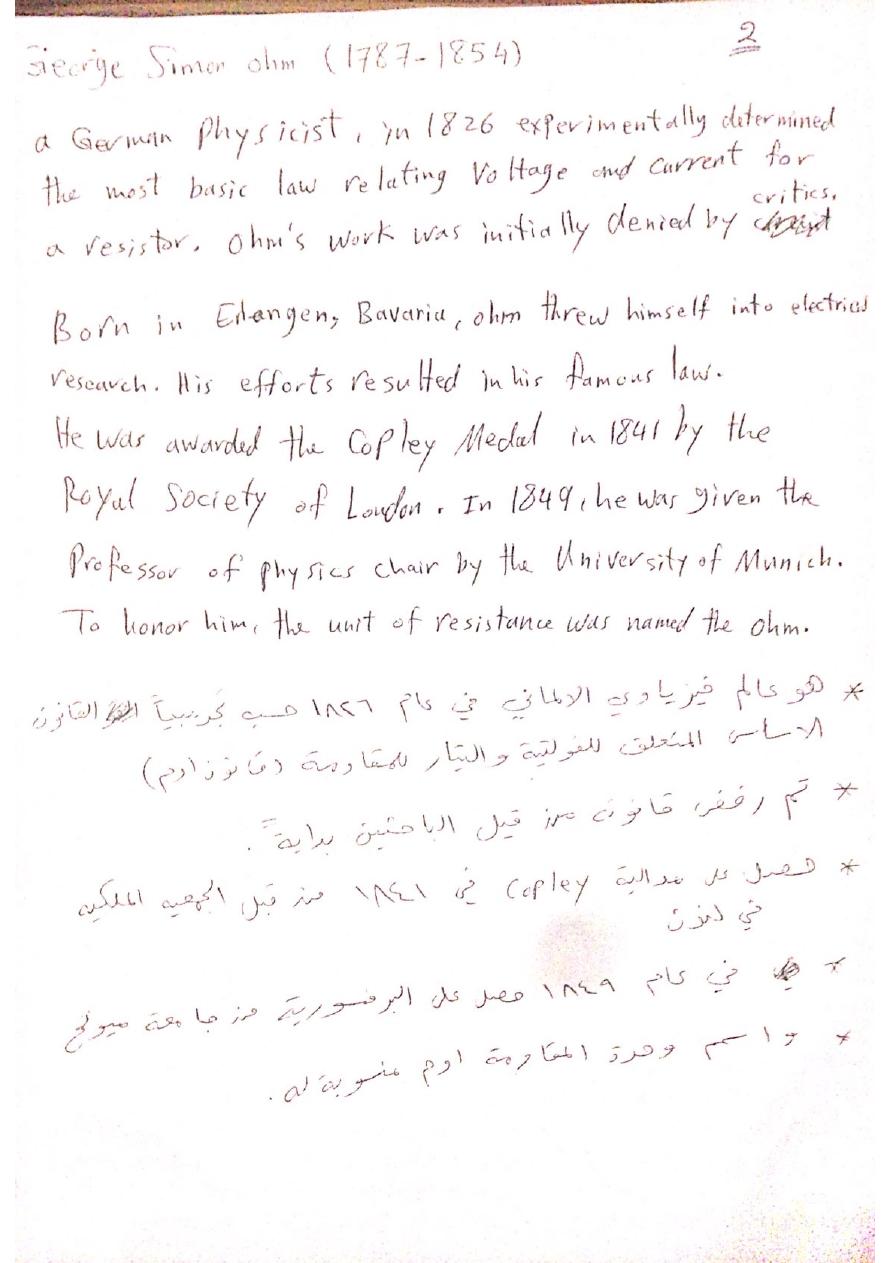 2
George Simon ohm (1787-1854)
a German physicist, in 1826 experimentally determined
the most basic law relating Voltage and current for
a resistor. Ohm's work was initially denied by critics.
Born in Erlangen, Bavaria, ohm threw himself into electrical
research. His efforts resulted in his famous law.
He was awarded the Copley Medal in 1841 by the
Royal Society of London. In 1849, he was given the
Professor of physics chair by the University of Munich.
To honor him, the unit of resistance was named the ohm.
* هو عالم فيزياوي الالماني في عام ١٨٢٦ حسب تجريبياً القانون
الاساس المتعلق للفولتية والتيار للمقاومة (قانون اوم)
* تم رفض قانونه من قبل الباحثين بداية ً.
* حصل على مدالية Copley في ١٨٤١ من قبل الجمعيه الملكيه
في لندن
* في عام ١٨٤٩ حصل على البرفسورية من جامعة ميونخ
* واسم وحدة المقاومة اوم منسوبة له.